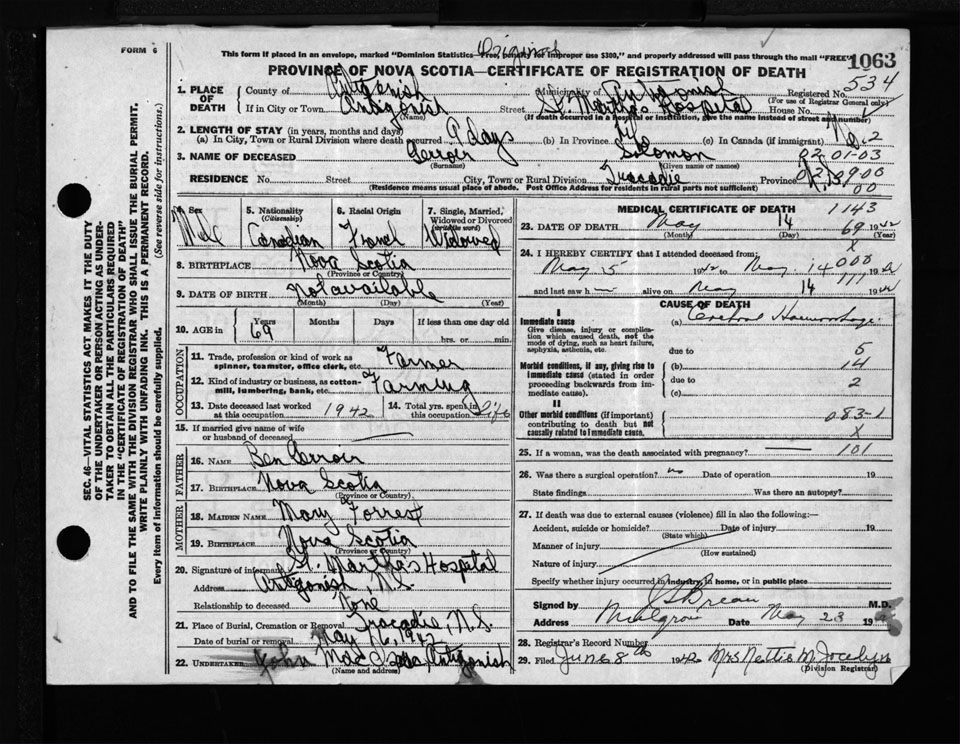 FORM 6
Original
This form if placed in an envelope, marked "Dominion Statistics—Free, penalty for improper use $300," and properly addressed will pass through the mail "FREE"
1063
PROVINCE OF NOVA SCOTIA—CERTIFICATE OF REGISTRATION OF DEATH
534
1. PLACE OF DEATH
County of Antigonish Municipality of Antigonish Registered No.
(For use of Registrar General only)
If in City or Town Antigonish Street St. Martha's Hospital House No.
(Name) (If death occurred in a hospital or institution, give the name instead of street and number)
2. LENGTH OF STAY (in years, months and days)
(a) In City, Town or Rural Division where death occurred 9 days (b) In Province (c) In Canada (if immigrant)
3. NAME OF DECEASED Gerroir Solomon 02-01-03
(Surname) (Given name or names)
RESIDENCE No. Street City, Town or Rural Division Tracadie Province N.S.
(Residence means usual place of abode. Post Office Address for residents in rural parts not sufficient)
00
4. Sex Male
5. Nationality (Citizenship) Canadian
6. Racial Origin French
7. Single, Married, Widowed or Divorced (write the word) Widowed
8. BIRTHPLACE Nova Scotia
(Province or Country)
9. DATE OF BIRTH Not available
(Month) (Day) (Year)
10. AGE in Years 69 Months Days If less than one day old
hrs. or min.
OCCUPATION
11. Trade, profession or kind of work as spinner, teamster, office clerk, etc. Farmer
12. Kind of industry or business, as cotton-mill, lumbering, bank, etc. Farming
13. Date deceased last worked at this occupation 1942
14. Total yrs. spent in this occupation Life
15. If married give name of wife or husband of deceased
FATHER
16. NAME Ben Gerroir
17. BIRTHPLACE Nova Scotia
(Province or Country)
MOTHER
18. MAIDEN NAME Mary Forrest
19. BIRTHPLACE Nova Scotia
(Province or Country)
20. Signature of informant St. Martha's Hospital
Address Antigonish N.S.
Relationship to deceased None
21. Place of Burial, Cremation or Removal Tracadie, N.S.
Date of burial or removal May 16, 1942
22. UNDERTAKER John MacIsaac, Antigonish
(Name and address)
MEDICAL CERTIFICATE OF DEATH
1143
23. DATE OF DEATH May 14
69
(Month) (Day) (Year)
X
24. I HEREBY CERTIFY that I attended deceased from:
May 5 1942 to May 14 1942
000
111
and last saw h alive on May 14 1942
CAUSE OF DEATH
I
Immediate cause
Give disease, injury or complication which caused death, not the mode of dying, such as heart failure, asphyxia, asthenia, etc.
(a) Cerebral Haemorrhage
due to 5
Morbid conditions, if any, giving rise to immediate cause (stated in order proceeding backwards from immediate cause).
(b) 14
due to 2
(c)
II
Other morbid conditions (if important) contributing to death but not causally related to immediate cause.
083-1
X
25. If a woman, was the death associated with pregnancy? 101
26. Was there a surgical operation? no Date of operation 19
State findings Was there an autopsy?
27. If death was due to external causes (violence) fill in also the following:—
Accident, suicide or homicide? Date of injury 19
(State which)
Manner of injury
(How sustained)
Nature of injury
Specify whether injury occurred in industry, in home, or in public place
Signed by M.D.
Address Mulgrave Date May 23 19
28. Registrar's Record Number
29. Filed June 8th 1942 Mrs Nettie M. Jocelyn
(Division Registrar)
SEC. 46—VITAL STATISTICS ACT MAKES IT THE DUTY OF THE UNDERTAKER OR PERSON ACTING AS UNDERTAKER TO OBTAIN ALL THE PARTICULARS REQUIRED IN THE "CERTIFICATE OF REGISTRATION OF DEATH" AND TO FILE THE SAME WITH THE DIVISION REGISTRAR WHO SHALL ISSUE THE BURIAL PERMIT.
WRITE PLAINLY WITH UNFADING INK. THIS IS A PERMANENT RECORD.
Every item of information should be carefully supplied.
(See reverse side for instructions.)